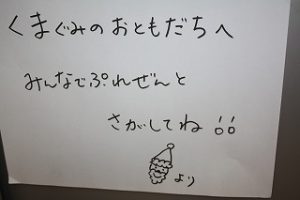 くまぐみのおともだちへ
みんなでぷれぜんと
さがしてね!!
より